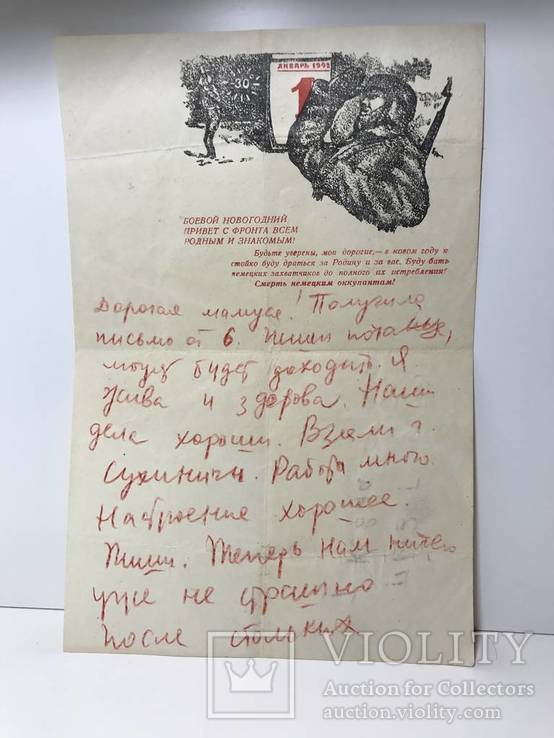 -30
ЯНВАРЬ 1942
1
БОЕВОЙ НОВОГОДНИЙ
ПРИВЕТ С ФРОНТА ВСЕМ
РОДНЫМ И ЗНАКОМЫМ!
Будьте уверены, мои дорогие,— в новом году я
стойко буду драться за Родину и за вас. Буду бить
немецких захватчиков до полного их истребления!
Смерть немецким оккупантам!
Дорогая мамуся! Получила
письмо от 6. Пиши
могут будет доходить. Я
жива и здорова. Наши
дела хороши. Взяли г.
Сухиничи. Работы много.
Настроение хорошее.
Пиши. Теперь нам ничего
уже не страшно
после стольких
VIOLITY
Auction for Collectors
auction.violity.com